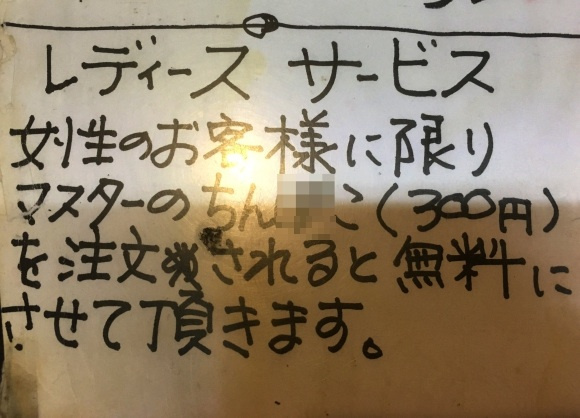 レディース サービス
女性のお客様に限り
マスターのちん こ(300円)
を注文されると無料に
させて頂きます。